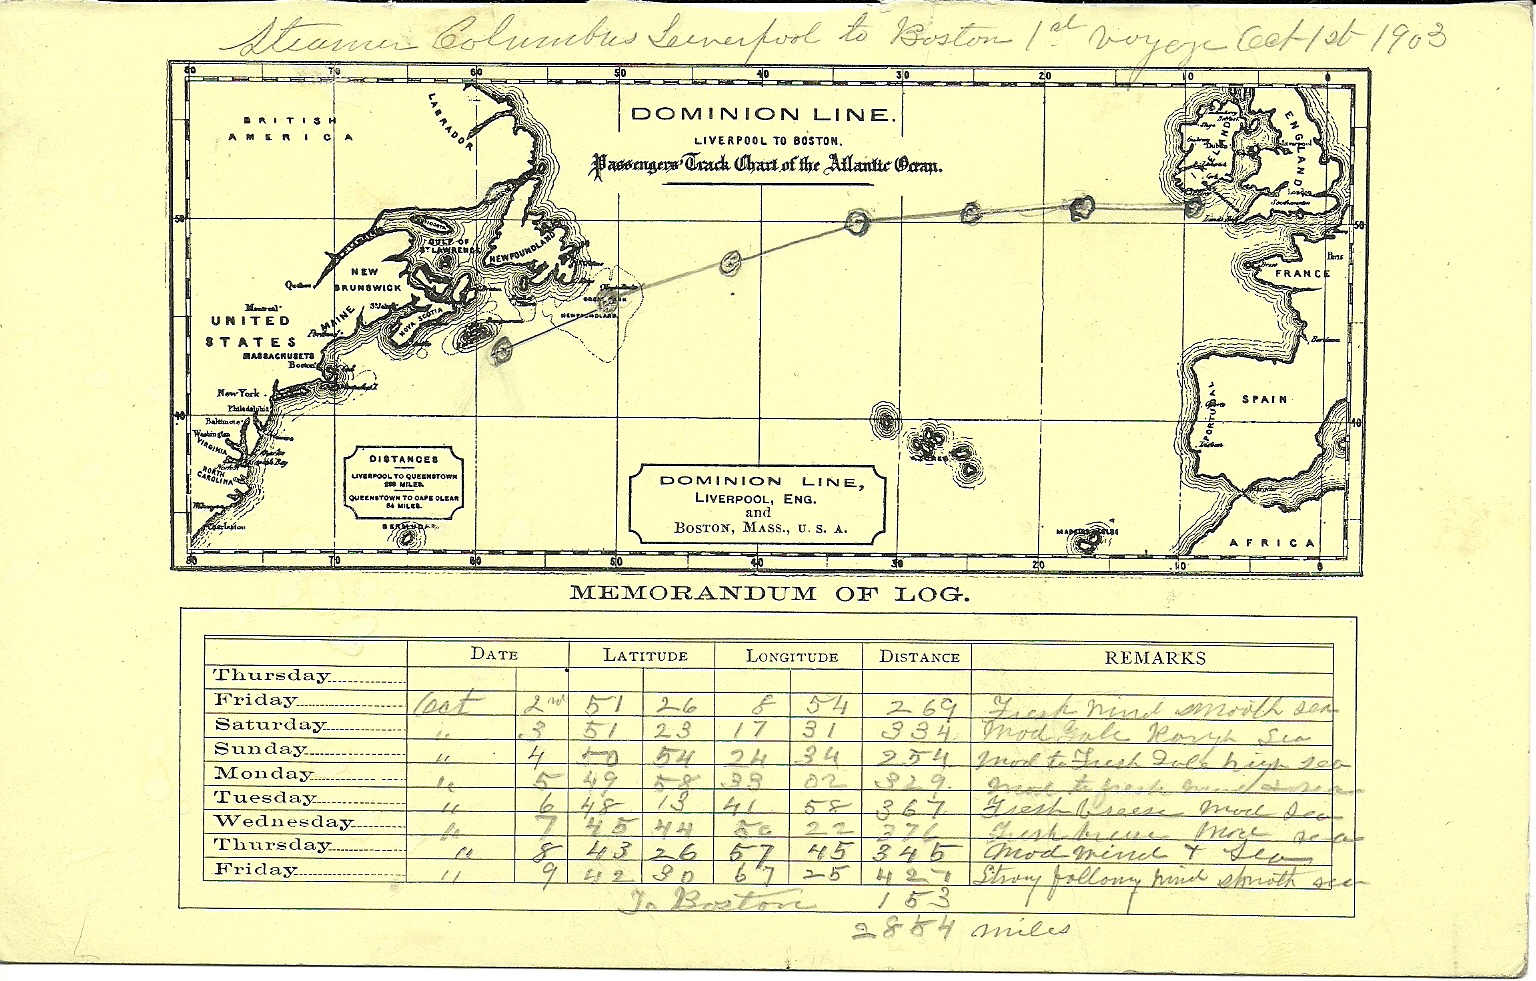 Steamer Columbus Liverpool to Boston 1st voyage Oct 1st 1903
80 70 60 50 40 30 20 10 0
DOMINION LINE.
LIVERPOOL TO BOSTON.
Passengers' Track Chart of the Atlantic Ocean.
BRITISH
AMERICA
LABRADOR
IRELAND
ENGLAND
50
50
GULF OF
ST LAWRENCE
NEWFOUNDLAND
NEW
BRUNSWICK
Quebec
Montreal
MAINE
NOVA SCOTIA
UNITED
STATES
MASSACHUSETS
Boston
New York
Philadelphia
Baltimore
Washington
VIRGINIA
NORTH
CAROLINA
Charleston
NEWFOUNDLAND
Paris
Brest
FRANCE
Bordeaux
SPAIN
PORTUGAL
Lisbon
40
40
AFRICA
BERMUDAS
DISTANCES
LIVERPOOL TO QUEENSTOWN
QUEENSTOWN TO CAPE CLEAR
54 MILES.
DOMINION LINE,
LIVERPOOL, ENG.
and
BOSTON, MASS., U. S. A.
80 70 60 50 40 30 20 10 0
MEMORANDUM OF LOG.
DATE LATITUDE LONGITUDE DISTANCE REMARKS
Thursday
Friday Oct 2nd 51 26 8 54 269 Fresh wind smooth sea
Saturday " 3 51 23 17 31 334 Mod Gale Rough Sea
Sunday " 4 50 54 24 34 254 Mod to Fresh Gale high sea
Monday " 5 49 58 33 02 329 Mod to fresh wind & sea
Tuesday " 6 48 13 41 58 367 Fresh breese Mod Sea
Wednesday " 7 45 44 50 22 376 Fresh breese Mod sea
Thursday " 8 43 26 57 45 345 Mod wind & Sea
Friday " 9 42 30 67 25 427 Strong following wind smooth sea
To Boston 153
2854 miles